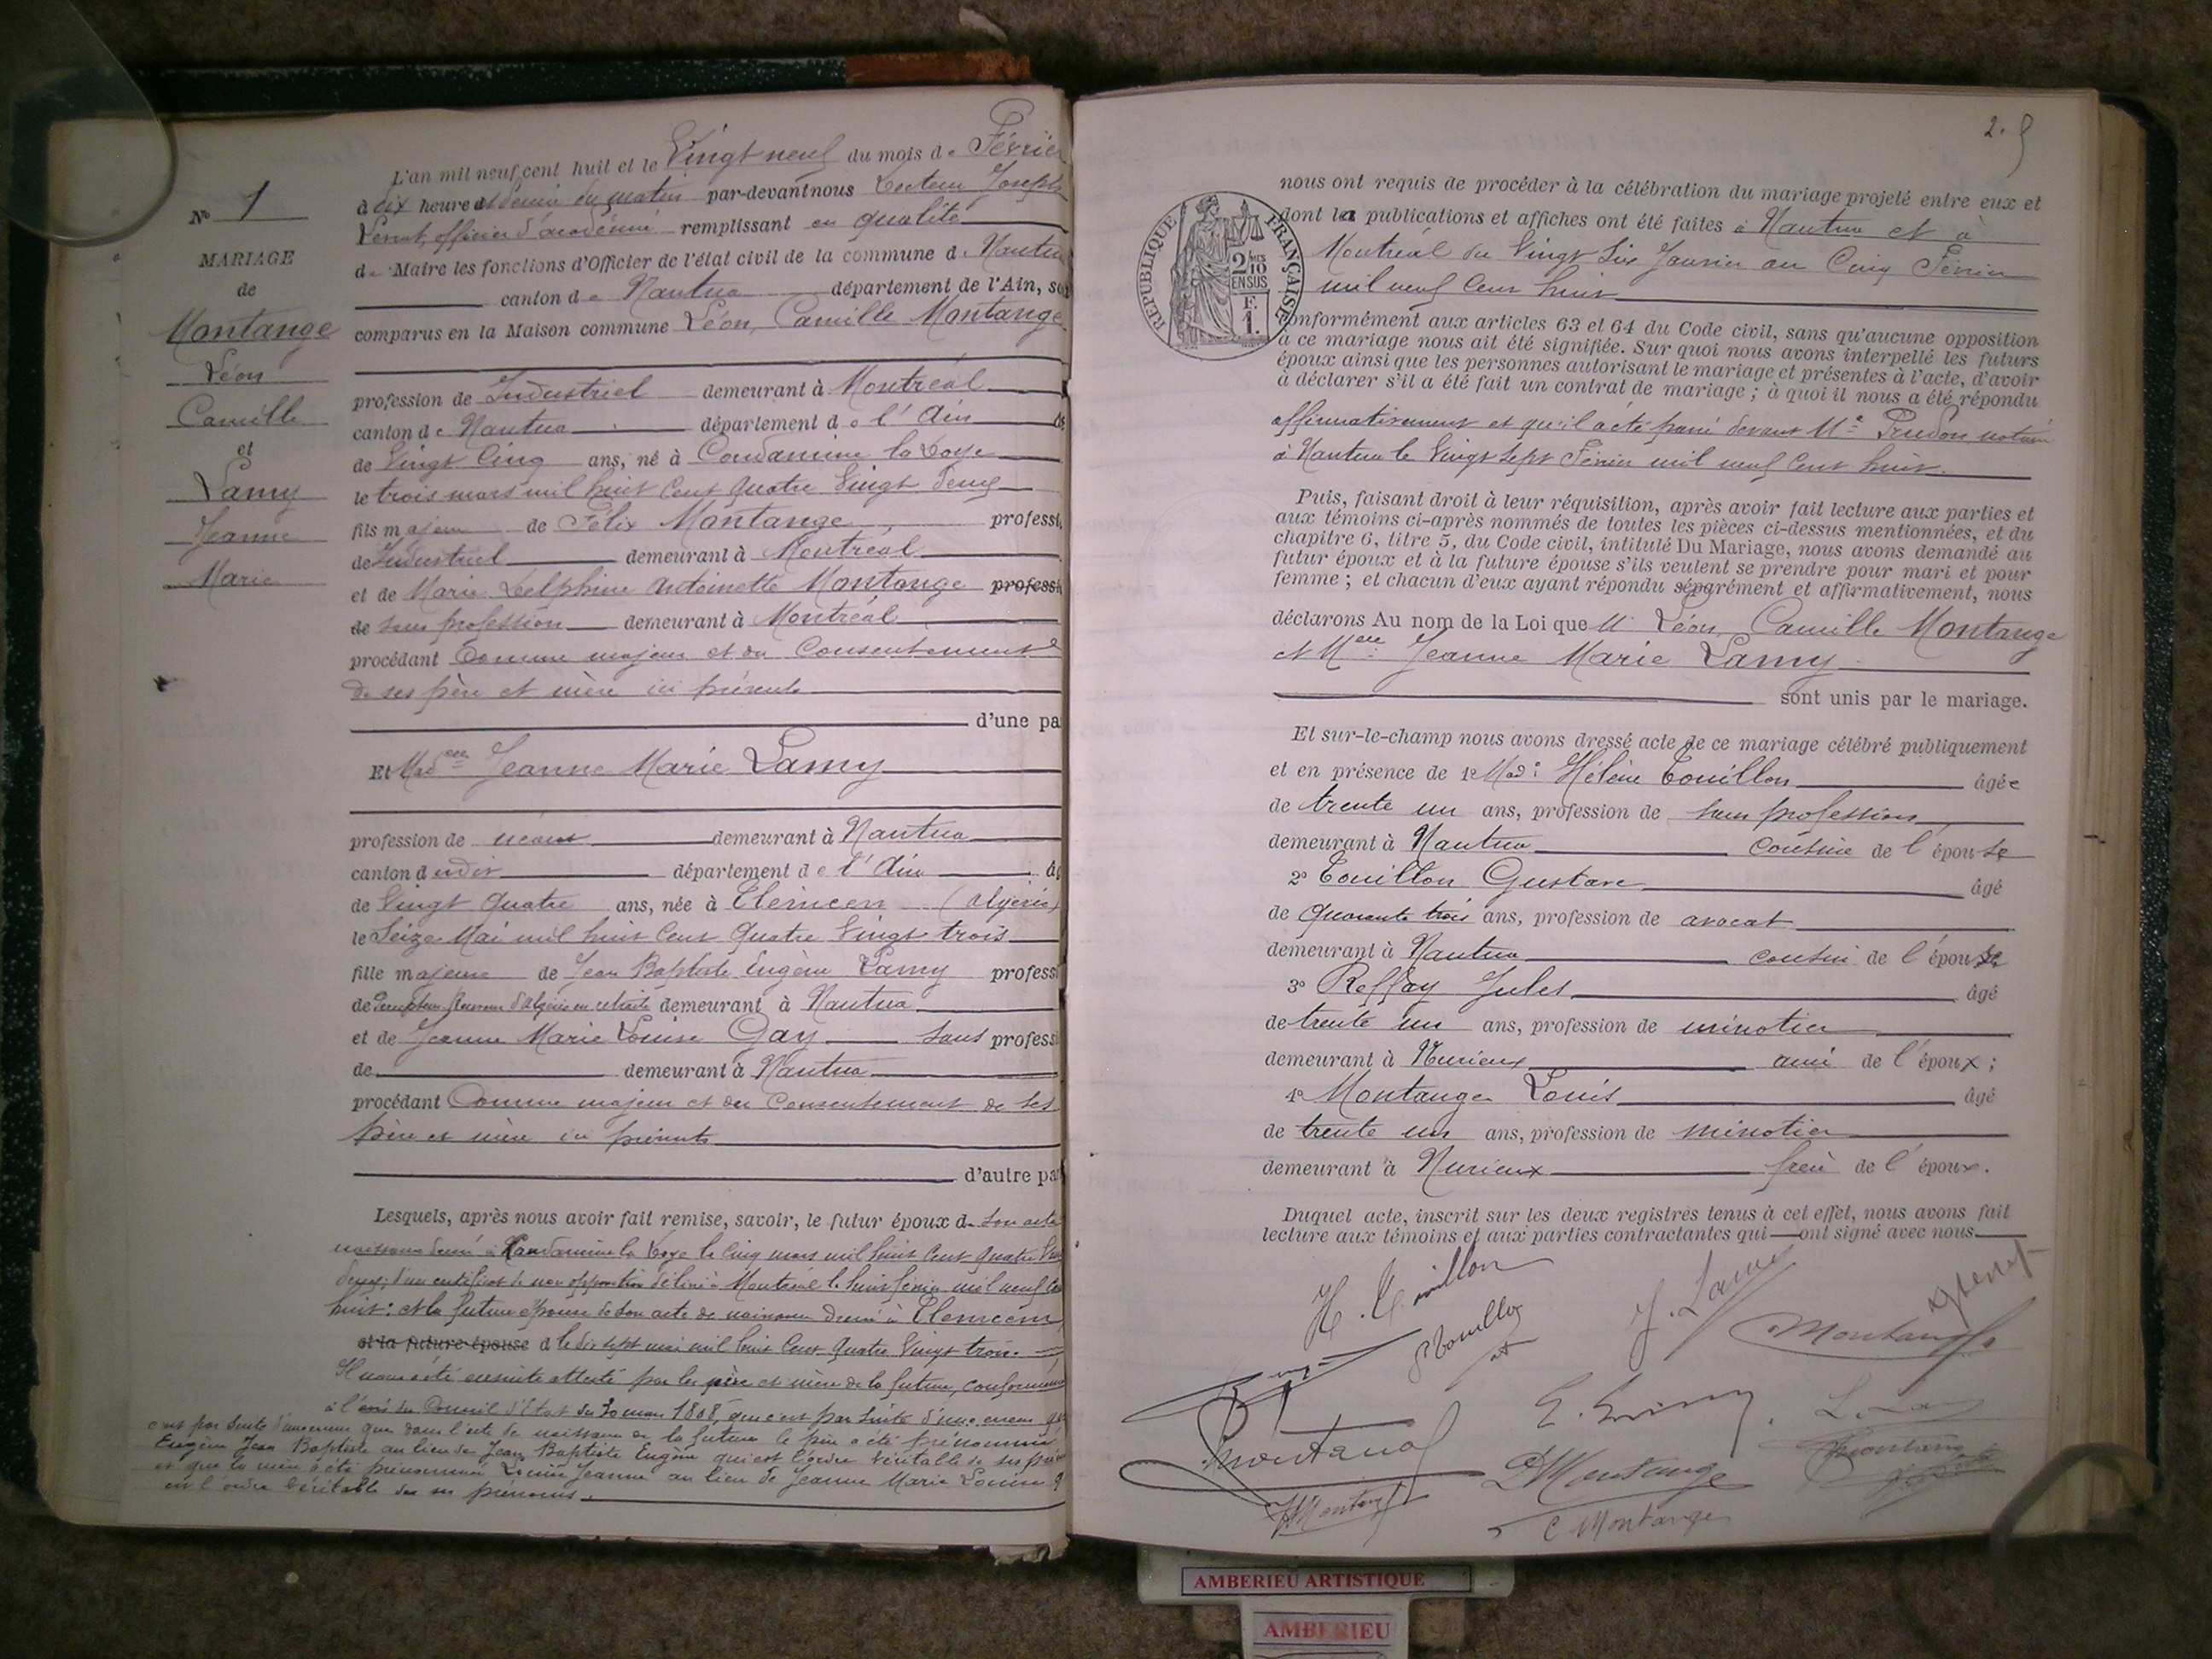 L'an mil neuf cent huit et le Vingt neuf du mois de Février
à dix heures et demie du matin par-devant nous Lecteur Joseph
officier d'académie remplissant en qualité
de Maire les fonctions d'Officier de l'état civil de la commune de Nantua
canton de Nantua département de l'Ain, so
comparus en la Maison commune Léon, Camille Montange
profession de Industriel demeurant à Montréal
canton de Nantua département de l'Ain
de Vingt Cinq ans, né à Condamine la Doye
le trois mars mil huit Cent Quatre Vingt deux
fils majeur de Félix Montange professi
de Industriel demeurant à Montréal
et de Marie Delphine Antoinette Montange professi
de sans profession demeurant à Montréal
procédant Comme majeur et du Consentement
de ses père et mère ici présents
d'une pa
Et Madelle Jeanne Marie Lamy
profession de néant demeurant à Nantua
canton dudit département de l'Ain
de Vingt Quatre ans, née à Tlemcen (Algérie)
le Seize Mai mil huit Cent Quatre Vingt trois
fille majeure de Jean Baptiste Eugène Lamy professi
de d'Algérie en retraite demeurant à Nantua
et de Jeanne Marie Louise Gay sans professi
de demeurant à Nantua
procédant Comme majeur et du Consentement de ses
père et mère ici présents
d'autre pa
Lesquels, après nous avoir fait remise, savoir, le futur époux de son acte
naissance dressé à Condamine la Doye le Cinq mars mil huit Cent Quatre Vin
deux; d'un certificat de non opposition délivré à Montréal le huit février mil neuf ce
huit; et la future épouse de son acte de naissance dressé à Tlemcen
et la future épouse d le dix sept mai mil huit Cent Quatre Vingt trois.
Il nous a été ensuite attesté par les père et mère de la future, conformém
à l'avis du Conseil d'Etat du 30 mars 1808, que c'est par suite d'une erreur que
par suite d'une erreur que dans l'acte de naissance de la future le père a été prénommé
Eugène Jean Baptiste au lieu de Jean Baptiste Eugène qui est l'ordre véritable de ses pré
et que la mère a été prénommée Louise Jeanne au lieu de Jeanne Marie Louise q
est l'ordre véritable de ses prénoms.
No 1
MARIAGE
de
Montange
Léon
Camille
et
Lamy
Jeanne
Marie
2.
nous ont requis de procéder à la célébration du mariage projeté entre eux et
dont les publications et affiches ont été faites à Nantua et à
Montréal du Vingt Six Janvier au Cinq Février
mil neuf Cent huit
conformément aux articles 63 et 64 du Code civil, sans qu'aucune opposition
à ce mariage nous ait été signifiée. Sur quoi nous avons interpellé les futurs
époux ainsi que les personnes autorisant le mariage et présentes à l'acte, d'avoir
à déclarer s'il a été fait un contrat de mariage ; à quoi il nous a été répondu
affirmativement et qu'il a été passé devant Me Prudon notaire
à Nantua le Vingt Sept Février mil neuf Cent huit.
Puis, faisant droit à leur réquisition, après avoir fait lecture aux parties et
aux témoins ci-après nommés de toutes les pièces ci-dessus mentionnées, et du
chapitre 6, titre 5, du Code civil, intitulé Du Mariage, nous avons demandé au
futur époux et à la future épouse s'ils veulent se prendre pour mari et pour
femme ; et chacun d'eux ayant répondu séparément et affirmativement, nous
déclarons Au nom de la Loi que M. Léon, Camille Montange
et Melle Jeanne Marie Lamy
sont unis par le mariage.
Et sur-le-champ nous avons dressé acte de ce mariage célébré publiquement
et en présence de 1o Made Hélène Touillon âgée
de trente un ans, profession de sans profession
demeurant à Nantua cousine de l'épouse
2o Touillon Gustave âgé
de Quarante trois ans, profession de avocat
demeurant à Nantua cousin de l'épouse
3o Reffay Jules âgé
de trente un ans, profession de minotier
demeurant à Nurieux ami de l'époux ;
4o Montange Louis âgé
de trente un ans, profession de minotier
demeurant à Nurieux frère de l'époux.
Duquel acte, inscrit sur les deux registres tenus à cet effet, nous avons fait
lecture aux témoins et aux parties contractantes qui ont signé avec nous
H. Touillon
J. Lamy
G Touillon
Montange
Montange
E. Lamy
D Montange
Montange
C Montange
RÉPUBLIQUE FRANÇAISE
2/10
EN SUS
F.
1.
AMBERIEU ARTISTIQUE
AMBERIEU